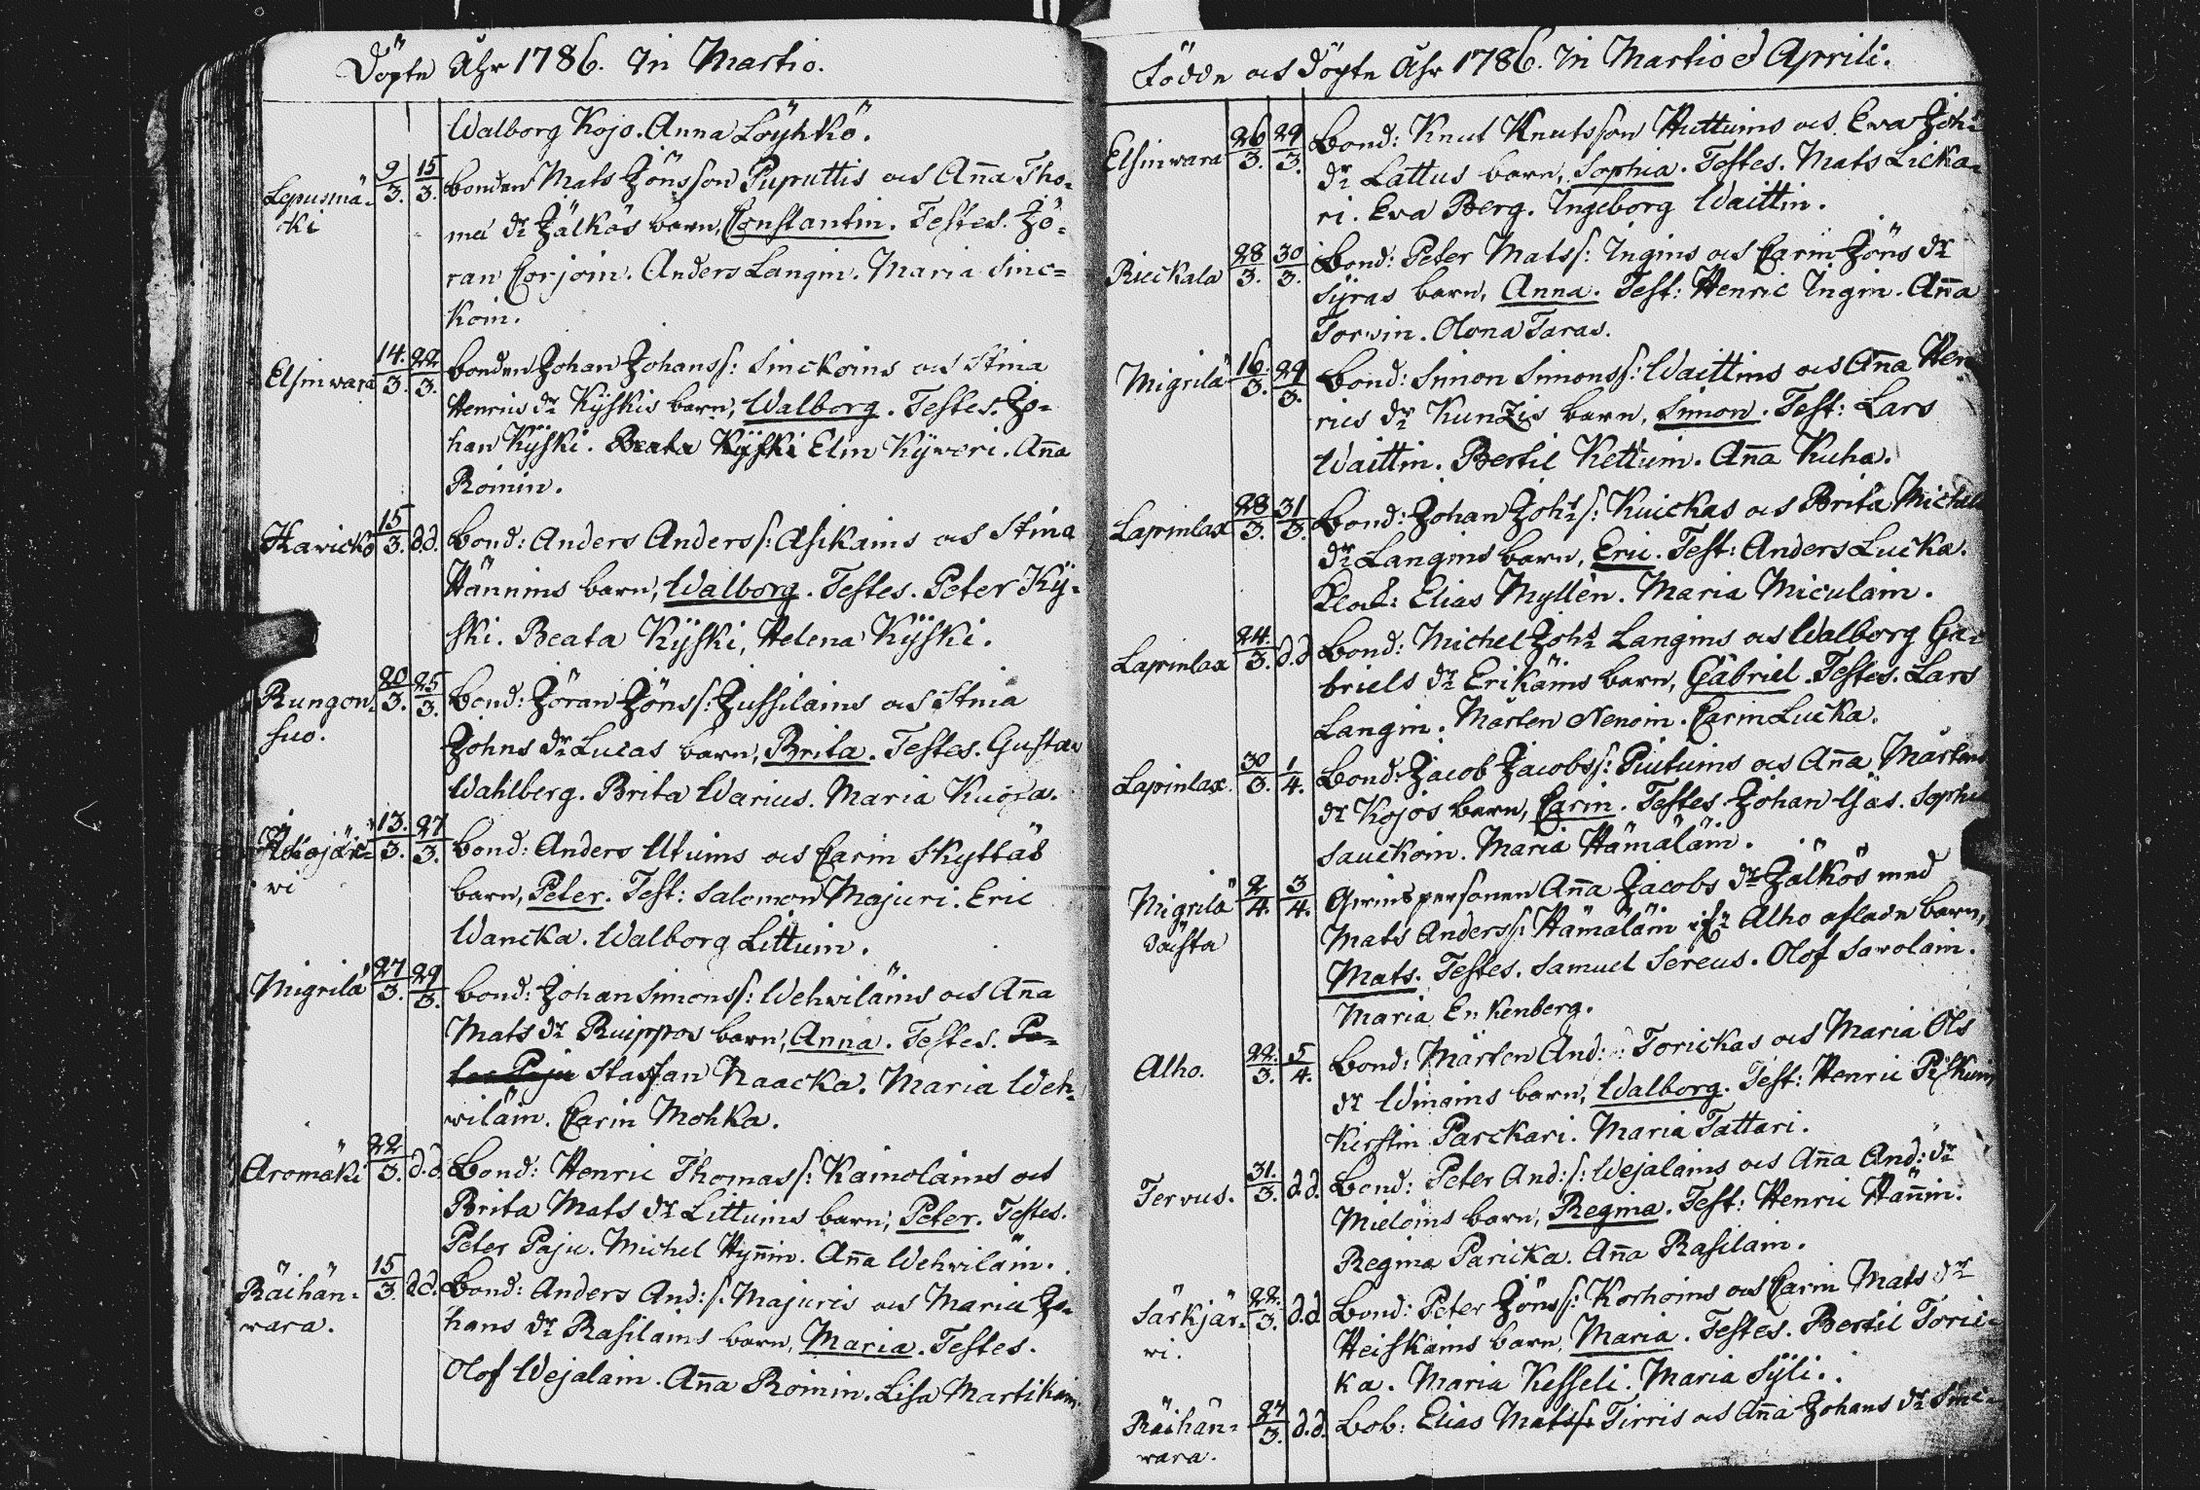 Döpte Åhr 1786. In Martio.
Walborg Kojo. Anna Löyhkö.
Lepusmä- 9/3. 15/3. bonden Mats Jönsson Puputtis och Anna Tho-
ki mæ dr Jälkös barn, Constantin. Testes. Jö-
ran Corjoin. Anders Langin. Maria Sinc-
koin.
Elsinwara 14./3. 22/3. bonden Johan Johans s: Sinckoins och Stina
Henrics dr Kÿskis barn, Walborg. Testes. Jo-
han Kÿski. Beata Kÿski Elin Kÿweri. Anna
Roinin.
Haricko 15/3. d.d. bond: Anders Anders s: Asikains och Stina
Hännins barn, Walborg. Testes. Peter Kÿ-
ski. Beata Kÿski, Helena Kÿski.
Rungon- 20/3. 25/3. bond: Jöran Jöns s: Jussilains och Stina
suo. Johns dr Lucas barn, Brita. Testes. Gustav
Wahlberg. Brita Warius. Maria Kuosa.
13./3. 27/3. bond: Anders Utuins och Carin Skyttäs
wi barn, Peter. Test: Salomon Majuri. Eric
Wancka. Walborg Littuin.
Migrilä 27/3. 29/3. bond: Johan Simons s: Wehwiläins och Anna
Mats dr Ruippos barn, Anna. Testes. Pe-
ter Paju Staffan Naacka. Maria Weh-
wiläin. Carin Mohka.
Aromäki 22/3. d.d. Bond: Henric Thomas s: Kainolains och
Brita Mats dr Littuins barn, Peter. Testes.
Peter Paju. Michel Hynnin. Anna Wehwiläin.
Räihän- 15/3. d.d. Bond: Anders And: s: Majuris och Maria Jo-
wara. hans dr Rasilains barn, Maria. Testes.
Olof Wejalain. Anna Roinin. Lisa Martikain.
Födde och Döpte Åhr 1786. In Martio et Aprili.
Elsinwara 26/3. 29/3. Bond: Knut Knutsson Huttuins och Eva Joh:
dr Lattus barn, Sophia. Testes. Mats Licka-
ri. Eva Berg. Ingeborg Waittin.
Rieckala 28/3. 30/3. Bond: Peter Mats s: Ingins och Carin Jöns dr
Sÿras barn, Anna. Test: Henric Ingin. Anna
Torvin. Olona Taras.
Migrilä 16./3. 29/3. Bond: Simon Simons s: Waittins och Anna Hen
rics dr Kunzis barn, Simon. Test: Lars
Waittin. Bertil Kettuin. Anna Kuha.
Lapinlax 28/3. 31/3. Bond: Johan Joh: s: Kuickas och Brita Michels
dr Langins barn, Eric. Test: Anders Lucka.
Elias Myllén. Maria Miculain.
Lapinlax 24./3. d.d Bond: Michel Joh: Langins och Walborg Ga-
briels dr Erikäins barn, Gabriel. Testes. Lars
Langin. Mårten Nenoin. Carin Lucka.
Lapinlax 30/3. 1/4. Bond: Jacob Jacobs s: Piutuins och Anna Mårtens
dr Kojos barn, Carin. Testes Johan Äjäs. Sophia
Sauckoin. Maria Hämäläin.
Migrilä 2/4. 3/4. Qvinspersonen Anna Jacobs dr Jälkös med
Mats Anders s: Hämäläin Alho aflade barn,
Mats. Testes. Samuel Sereus. Olof Sawolain.
Maria Enkenberg.
Alho. 22./3. 5/4. Bond: Mårten And: Torickas och Maria Ols
dr Winains barn, Walborg. Test: Henric
Kirstin Parckari. Maria Tattari.
Tervus. 31./3. d.d. Bond: Peter And: s: Wejalains och Anna And: dr
Mieloins barn, Regina. Test: Henric Hännin.
Regina Paricka. Anna Rasilain.
Särkjär- 22./3. d.d Bond: Peter Jöns s: Korhoins och Carin Mats dr
wi. Heiskains barn, Maria. Testes. Bertil Toric-
ka. Maria Kesseli. Maria Sÿli.
Räihän- 27/3. d.d. Bob: Elias Mats s: Tirris och Anna Johans dr Sinc-
wara.